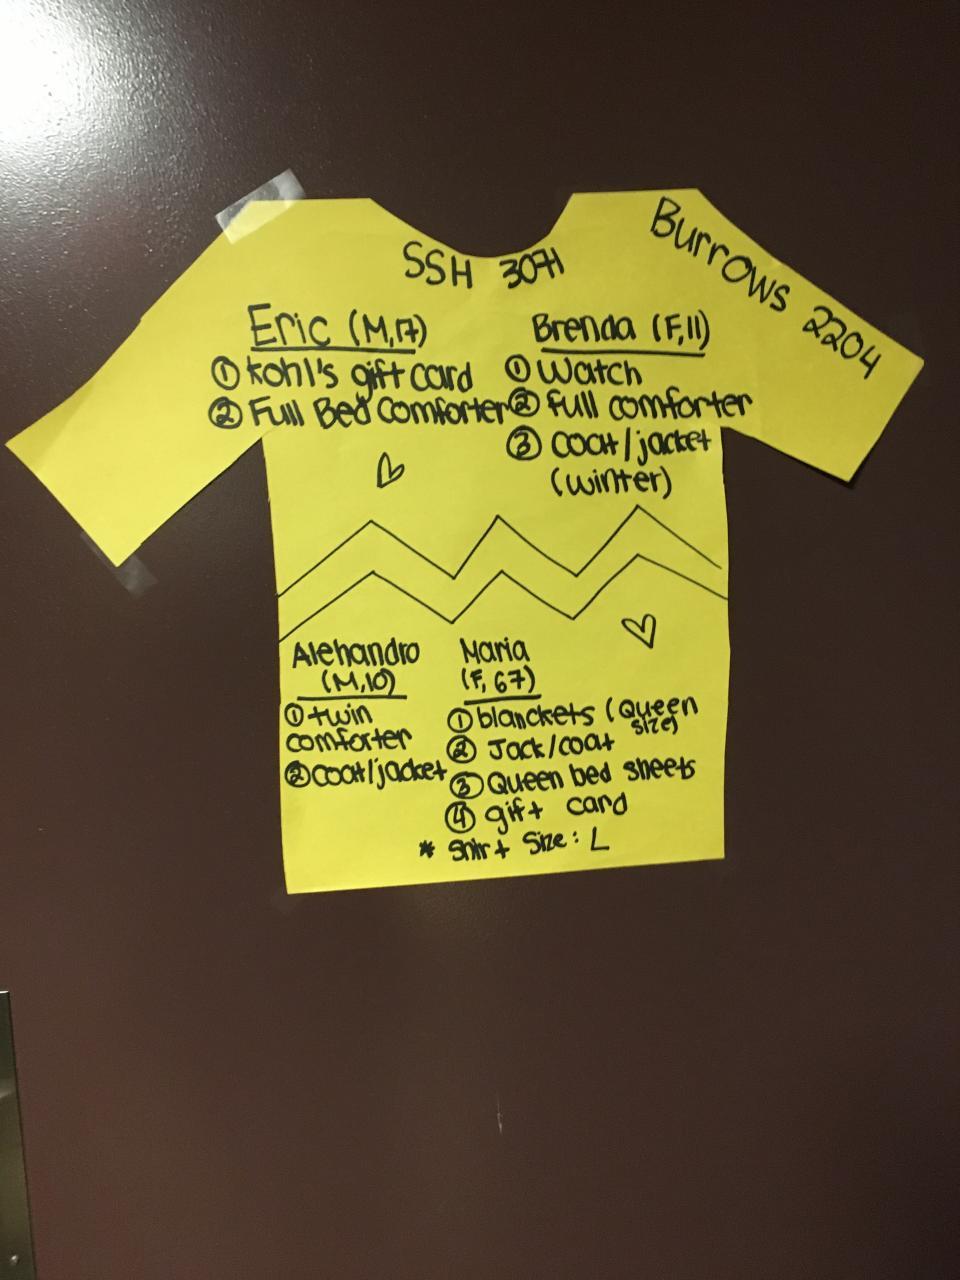 SSH 3071
Burrows 2204
Eric (M,17)
① Kohl's gift card
② Full Bed Comforter
Brenda (F,11)
① Watch
② full comforter
③ coat/jacket
(winter)
Alehandro
(M,10)
① twin
comforter
② coat/jacket
Maria
(F, 67)
① blanckets (Queen
size)
② Jack/coat
③ Queen bed sheets
④ gift card
* Shirt Size: L